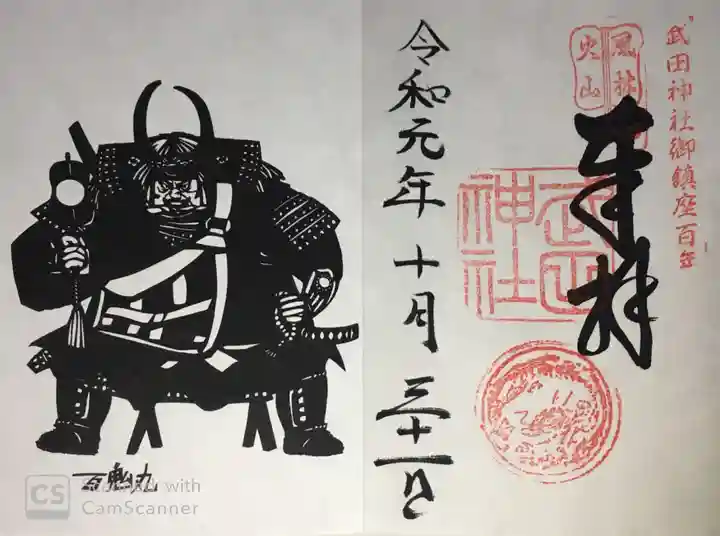 武田神社御鎮座百年
風林
火山
奉拝
武田
神社
令和元年 十月 三十一日
CS Scanned with
CamScanner